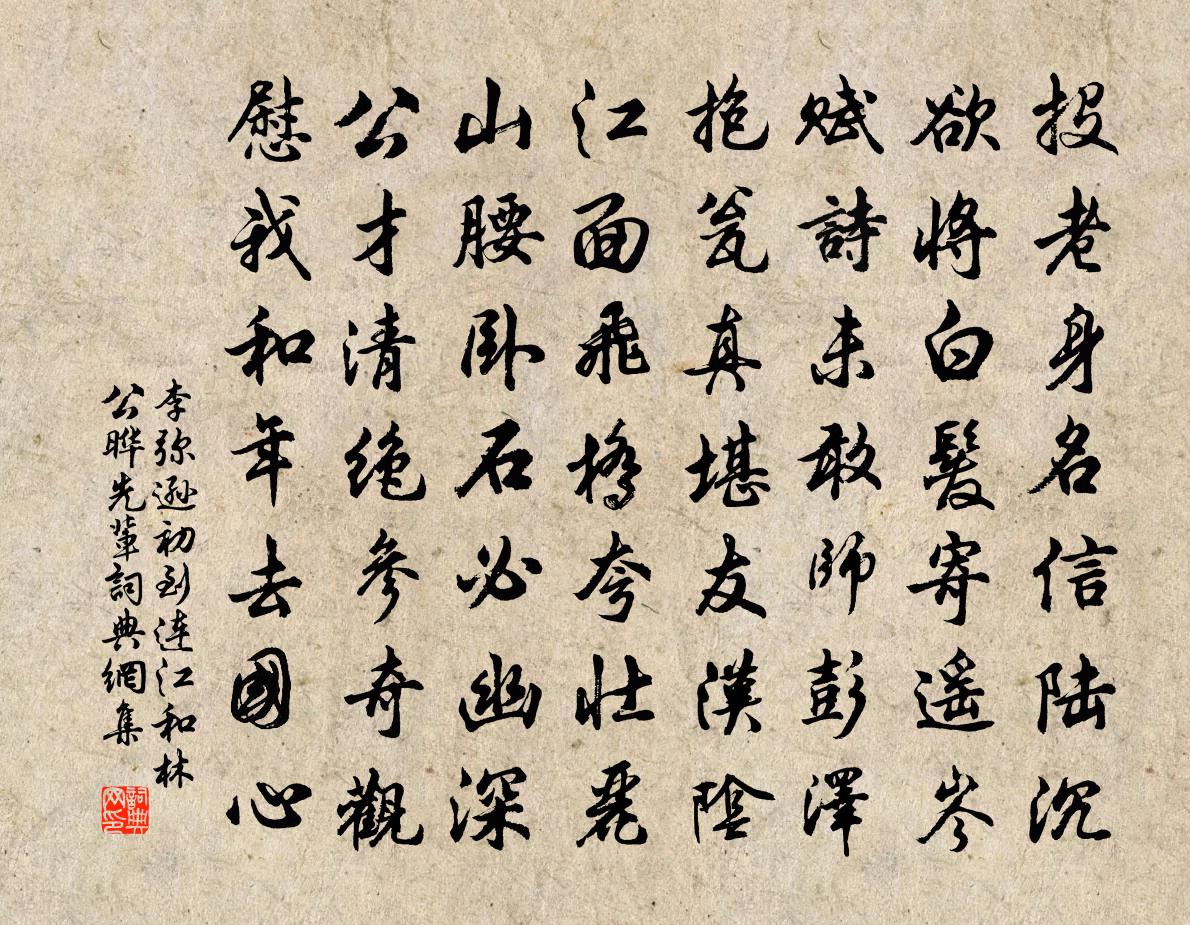 投老身名信陆沉
欲将白髮寄遥岑
赋詩未敢師彭澤
抱瓮真堪友漢陰
江面飛橋夸壮麗
山腰卧石必幽深
公才清絶參奇觀
慰我和年去國心
李弥遜初到连江和林
公曄先輩詞典網集
詞典网印